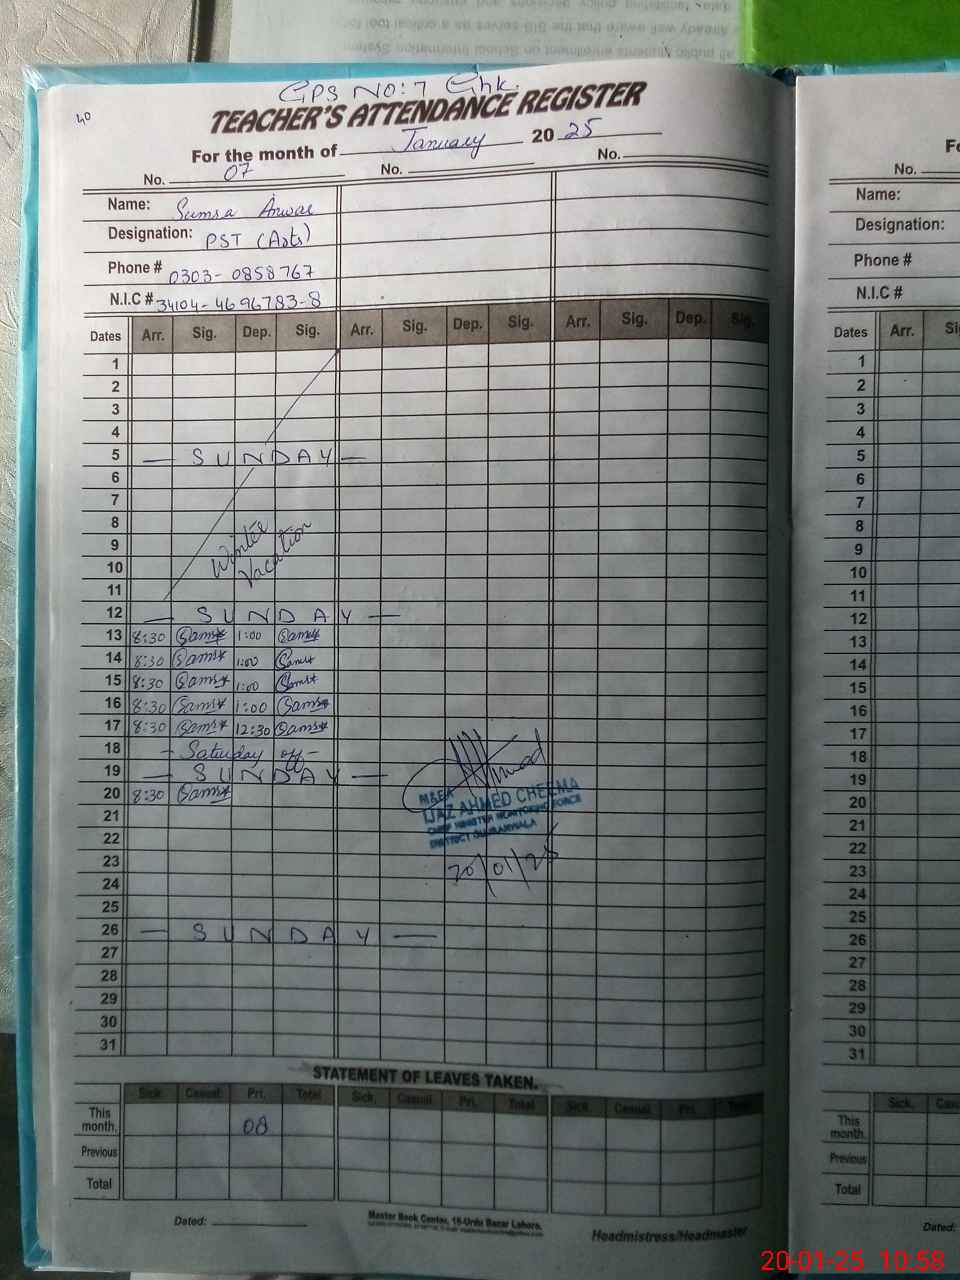 data, facilitating policy decisions and
already well aware that the SIS serves as a critical tool for
all public students enrollment on School Information System
40
GPS NO:7 Ghk.
TEACHER'S ATTENDANCE REGISTER
For the month of January 20 25
No. 07 No. No.
Name: Sumsa Anwar
Designation: PST (Arts)
Phone # 0303-0858767
N.I.C # 34104-4696783-8
Dates Arr. Sig. Dep. Sig. Arr. Sig. Dep. Sig. Arr. Sig. Dep. Sig.
1
2
3
4
5 — SUNDAY —
6
7
8
9 Winter
10 Vacation
11
12 — SUNDAY —
13 8:30 1:00
14 8:30 1:00
15 8:30 1:00
16 8:30 1:00
17 8:30 12:30
18 - Saturday off -
19 — SUNDAY —
20 8:30
M&EA
IJAZ AHMED CHEEMA
CHIEF MINISTER MONITORING FORCE
DISTRICT GUJRANWALA
20/01/25
21
22
23
24
25
26 — SUNDAY —
27
28
29
30
31
STATEMENT OF LEAVES TAKEN.
Sick Casual Pri. Total Sick. Casual Pri. Total Sick. Casual Pri. Total
This month. 08
Previous
Total
Dated:
Master Book Center, 16-Urdu Bazar Lahore.
Headmistress/Headmaster
No.
Name:
Designation:
Phone #
N.I.C #
Dates Arr.
1
2
3
4
5
6
7
8
9
10
11
12
13
14
15
16
17
18
19
20
21
22
23
24
25
26
27
28
29
30
31
Sick.
This month.
Previous
Total
Dated:
20-01-25 10:58